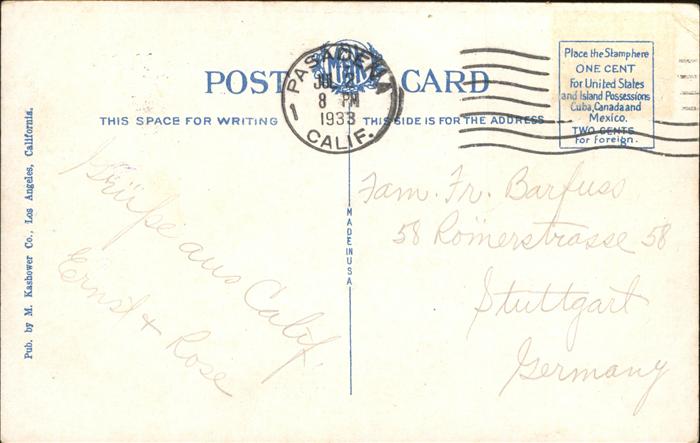 POST CARD
PASADENA
JUL 2
8 PM
1933
CALIF.
1
Place the Stamp here
ONE CENT
For United States
and Island Possessions
Cuba, Canada and
Mexico.
TWO CENTS
for foreign.
THIS SPACE FOR WRITING
THIS SIDE IS FOR THE ADDRESS
Pub. by M. Kashower Co., Los Angeles, California.
MADE IN USA
Grüße aus Calif.
Ernst + Rose
Fam. Fr. Barfuss
58 Römerstrasse 58
Stuttgart
Germany